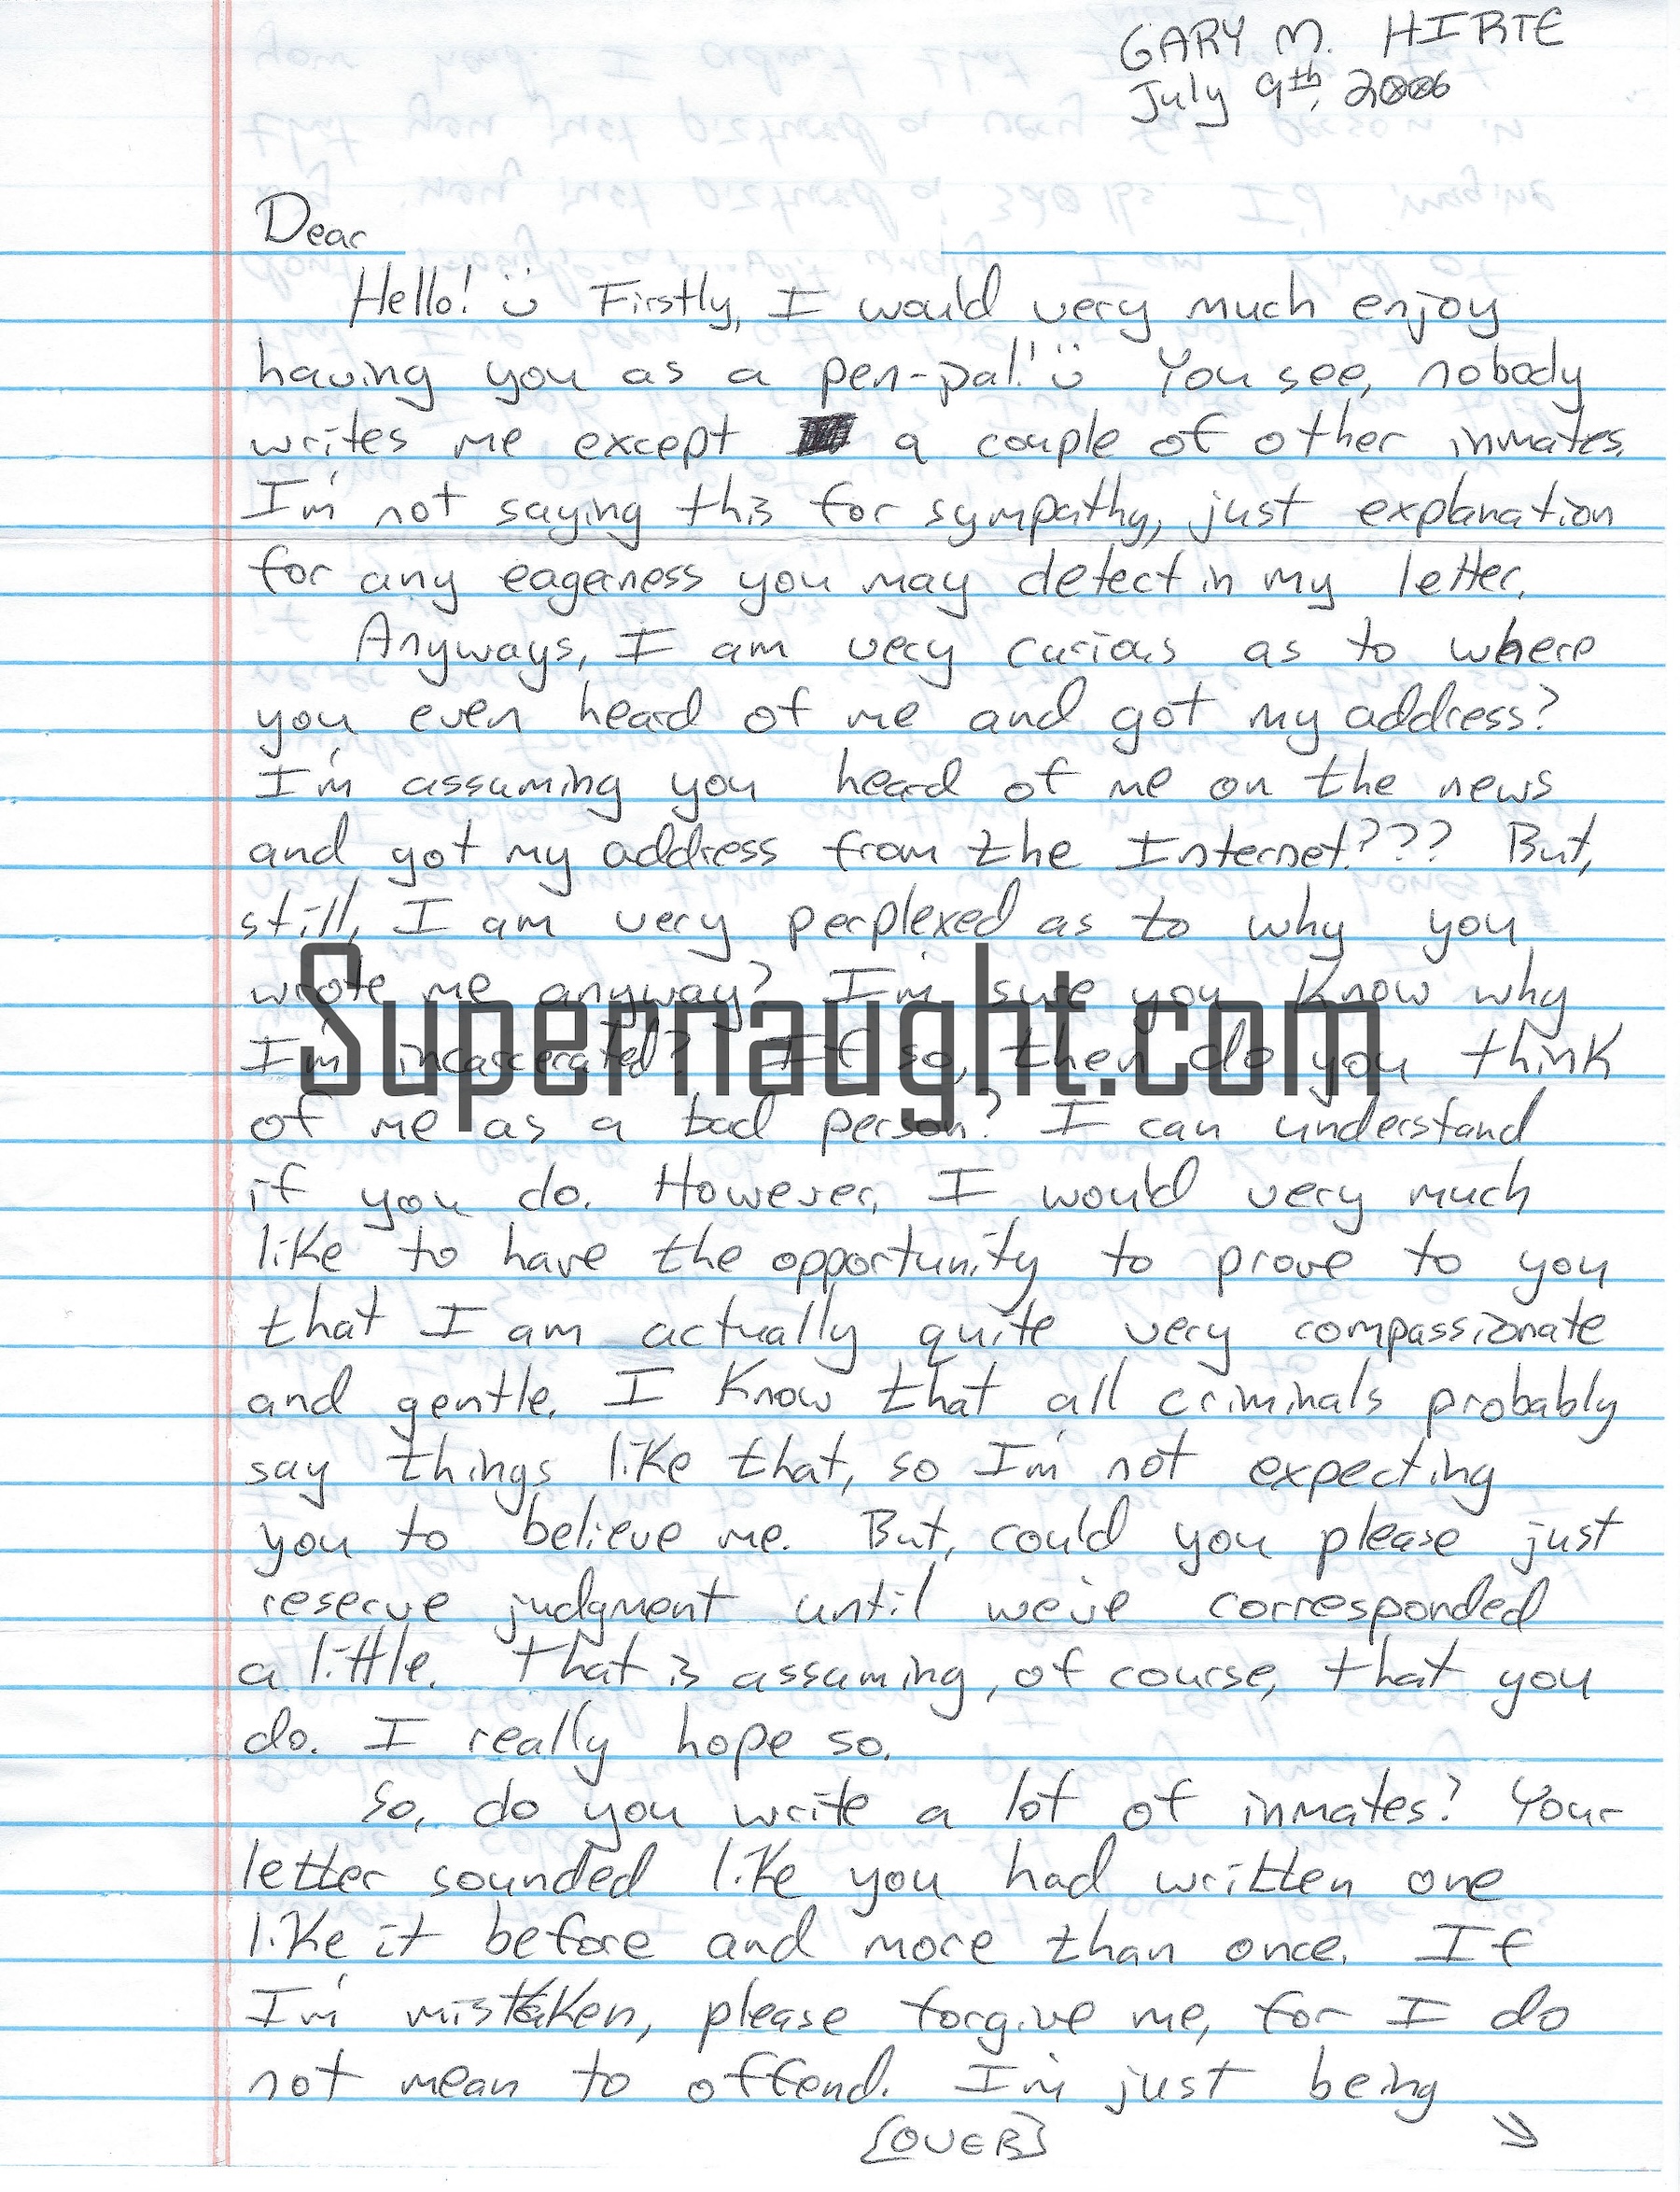 GARY M. HIRTE
July 9th, 2006
Dear
Hello! Firstly, I would very much enjoy
having you as a pen-pal! You see, nobody
writes me except a couple of other inmates.
I'm not saying this for sympathy, just explanation
for any eagerness you may detect in my letter.
Anyways, I am very curious as to where
you even heard of me and got my address?
I'm assuming you heard of me on the news
and got my address from the Internet??? But,
still, I am very perplexed as to why you
wrote me anyway? I'm sure you know why
Supernaught.com
I'm incarcerated? If so, then do you think
of me as a bad person? I can understand
if you do. However, I would very much
like to have the opportunity to prove to you
that I am actually quite very compassionate
and gentle. I know that all criminals probably
say things like that, so I'm not expecting
you to believe me. But, could you please just
reserve judgment until we've corresponded
a little. That is assuming, of course, that you
do. I really hope so.
So, do you write a lot of inmates? Your
letter sounded like you had written one
like it before and more than once. If
I'm mistaken, please forgive me, for I do
not mean to offend. I'm just being
{OVER}